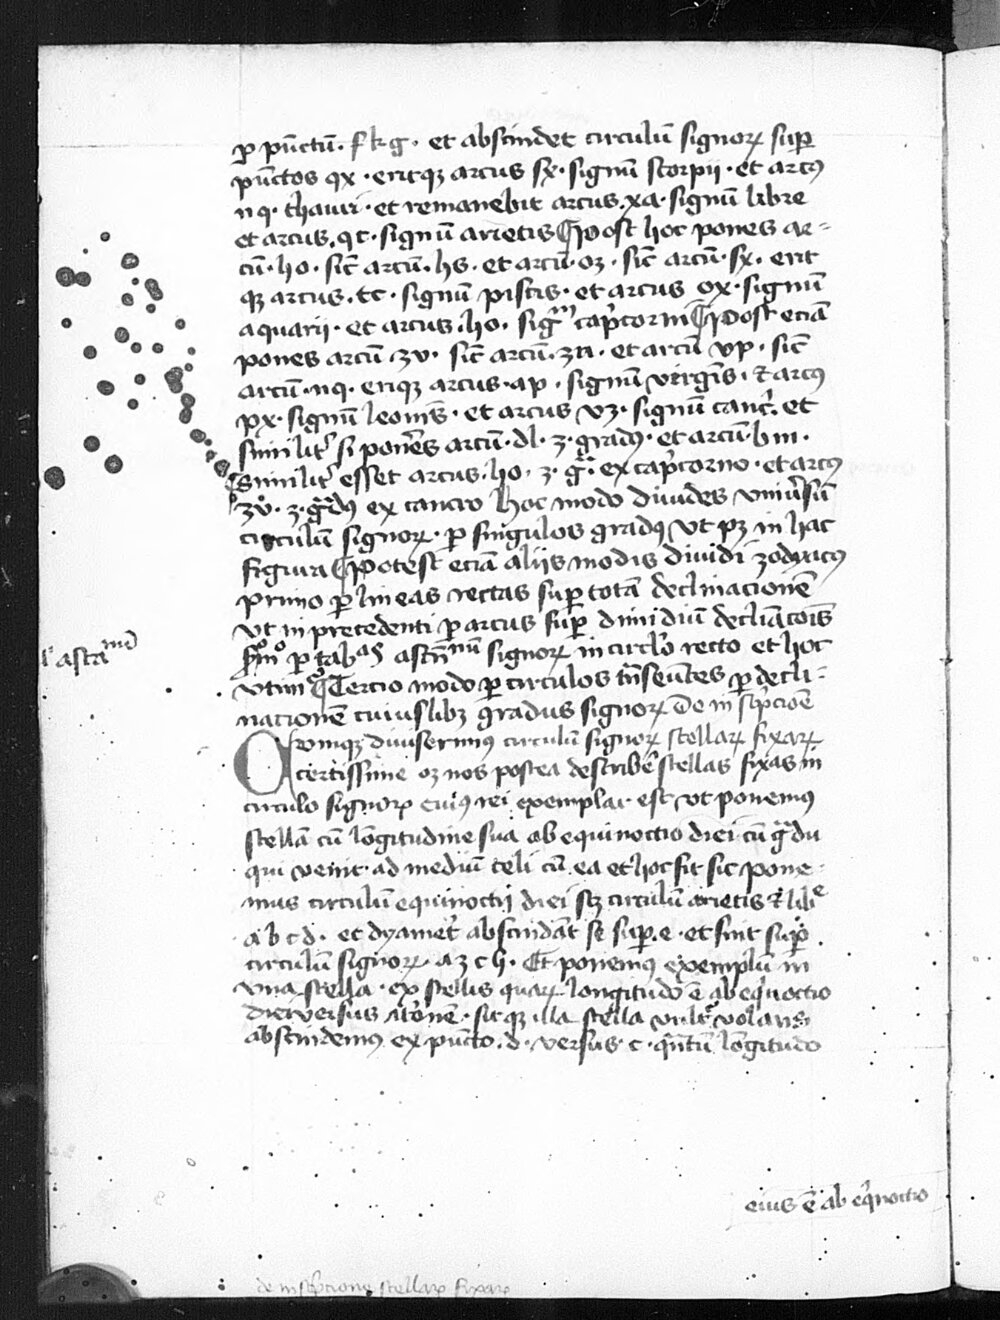 ꝑ pūctū · f k g · et abscindet circulū signoꝝ suꝑ
pūctos qx · eritqꝫ arcus sx · signū scorpii · et arcꝰ
nq · thauri · et remanebit arcus · xa · signū libre
et arcus · qc · signū arietis ¶ Post hoc pones ar-
cū · ho · sic̄ arcū · hs · et arcū · oz · sic̄ arcū · sx · erit
qꝫ arcus · tc · signū piscis · et arcus ox · signū
aquarii · et arcus · ho · sigm̄ cap̄corni ¶ Post eciā
pones arcū zv · sic̄ arcū · zn · et arcū vp · sic̄
arcū · nq · eritqꝫ arcus · ap · signū virgīs · et arcꝰ
px · signū leonis · et arcus vz · signū cancͥ · et
similitͥ si pones arcū · dl · z · gradꝰ · et arcū · bm ·
similitͥ esset arcus · ho · z · gͣ · ex cap̄corno · et arcꝰ
zv · z · gͣdꝰ ex cancro hoc modo diuides vniu̓sū
circulū signoꝝ · ꝑ singulos gradꝰ vt pꝫ in hac
figura ¶ Potest eciā aliis modis diuidi zodyacꝰ
primo ꝑ lineas rectas suꝑ totā declinacionē
vt in precedenti ꝑ arcus suꝑ dimidiū decliācōis
ꝑ tabᵃˢ ascn̄nū signoꝝ in circl̓o recto et hoc
¶ Tercio modo ꝑ circulos tn̄seūtes ꝑ decli-
nacionē cuiuslibꝫ gradus signoꝝ De in sc̓pcioē
diuiserimꝰ circulū signoꝝ stellaꝝ fixaꝝ
certissime oꝫ nos postea describe̓ stellas fixas in
circulo signoꝝ cuiꝰ rei exemplar est vt ponemꝰ
stellā cū lōgitudine sua ab equinoctio diei cū gͣdu
qui venit · ad mediū celi cū ea et hoc fit sic pone-
mus circulū equinoctii diei sꝫ circulū arietis et libᵉ
a b c d · et dyamet̓ abscindāt se suꝑ · e · et sint suꝑ
circulū signoꝝ · a z c h · Et ponemꝰ exemplū in
vna stella · ex stellis quaꝝ longitudo ē ab eq̓noctio
diei versus · sitqꝫ illa stella vultͣ volans
abscindemꝰ ex pūcto · d · versus · c · qͣntū lōgitudo
eius ē ab eq̓noctio
de insc̓pcione stellaꝝ fixaꝝ